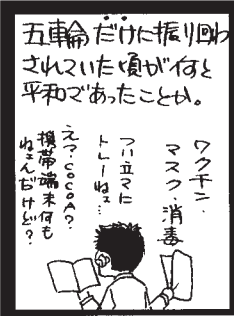 五輪だけに振り回わ
されていた頃が何と
平和であったことか。
ワクチン・
マスク・消毒
つい立てに
トレーねェ…
えっ?COCOA?
携帯端末何も
ねェんだけど?